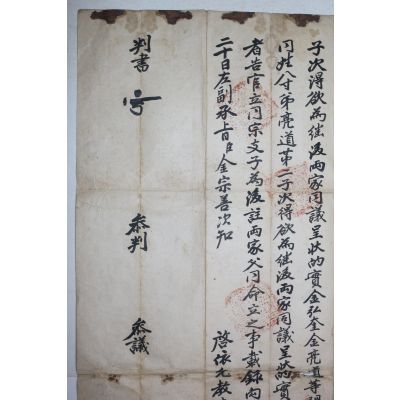 子次得欲爲継後兩家同議呈狀的實金弘奎金亮道等
同姓八寸弟亮道第二子次得欲爲継後兩家同議呈狀的實
者告官立同宗支子爲後註兩家父同命立之事載錄內
二十日左副承旨臣金宗善次知 啓依允教
判書 參判 參議